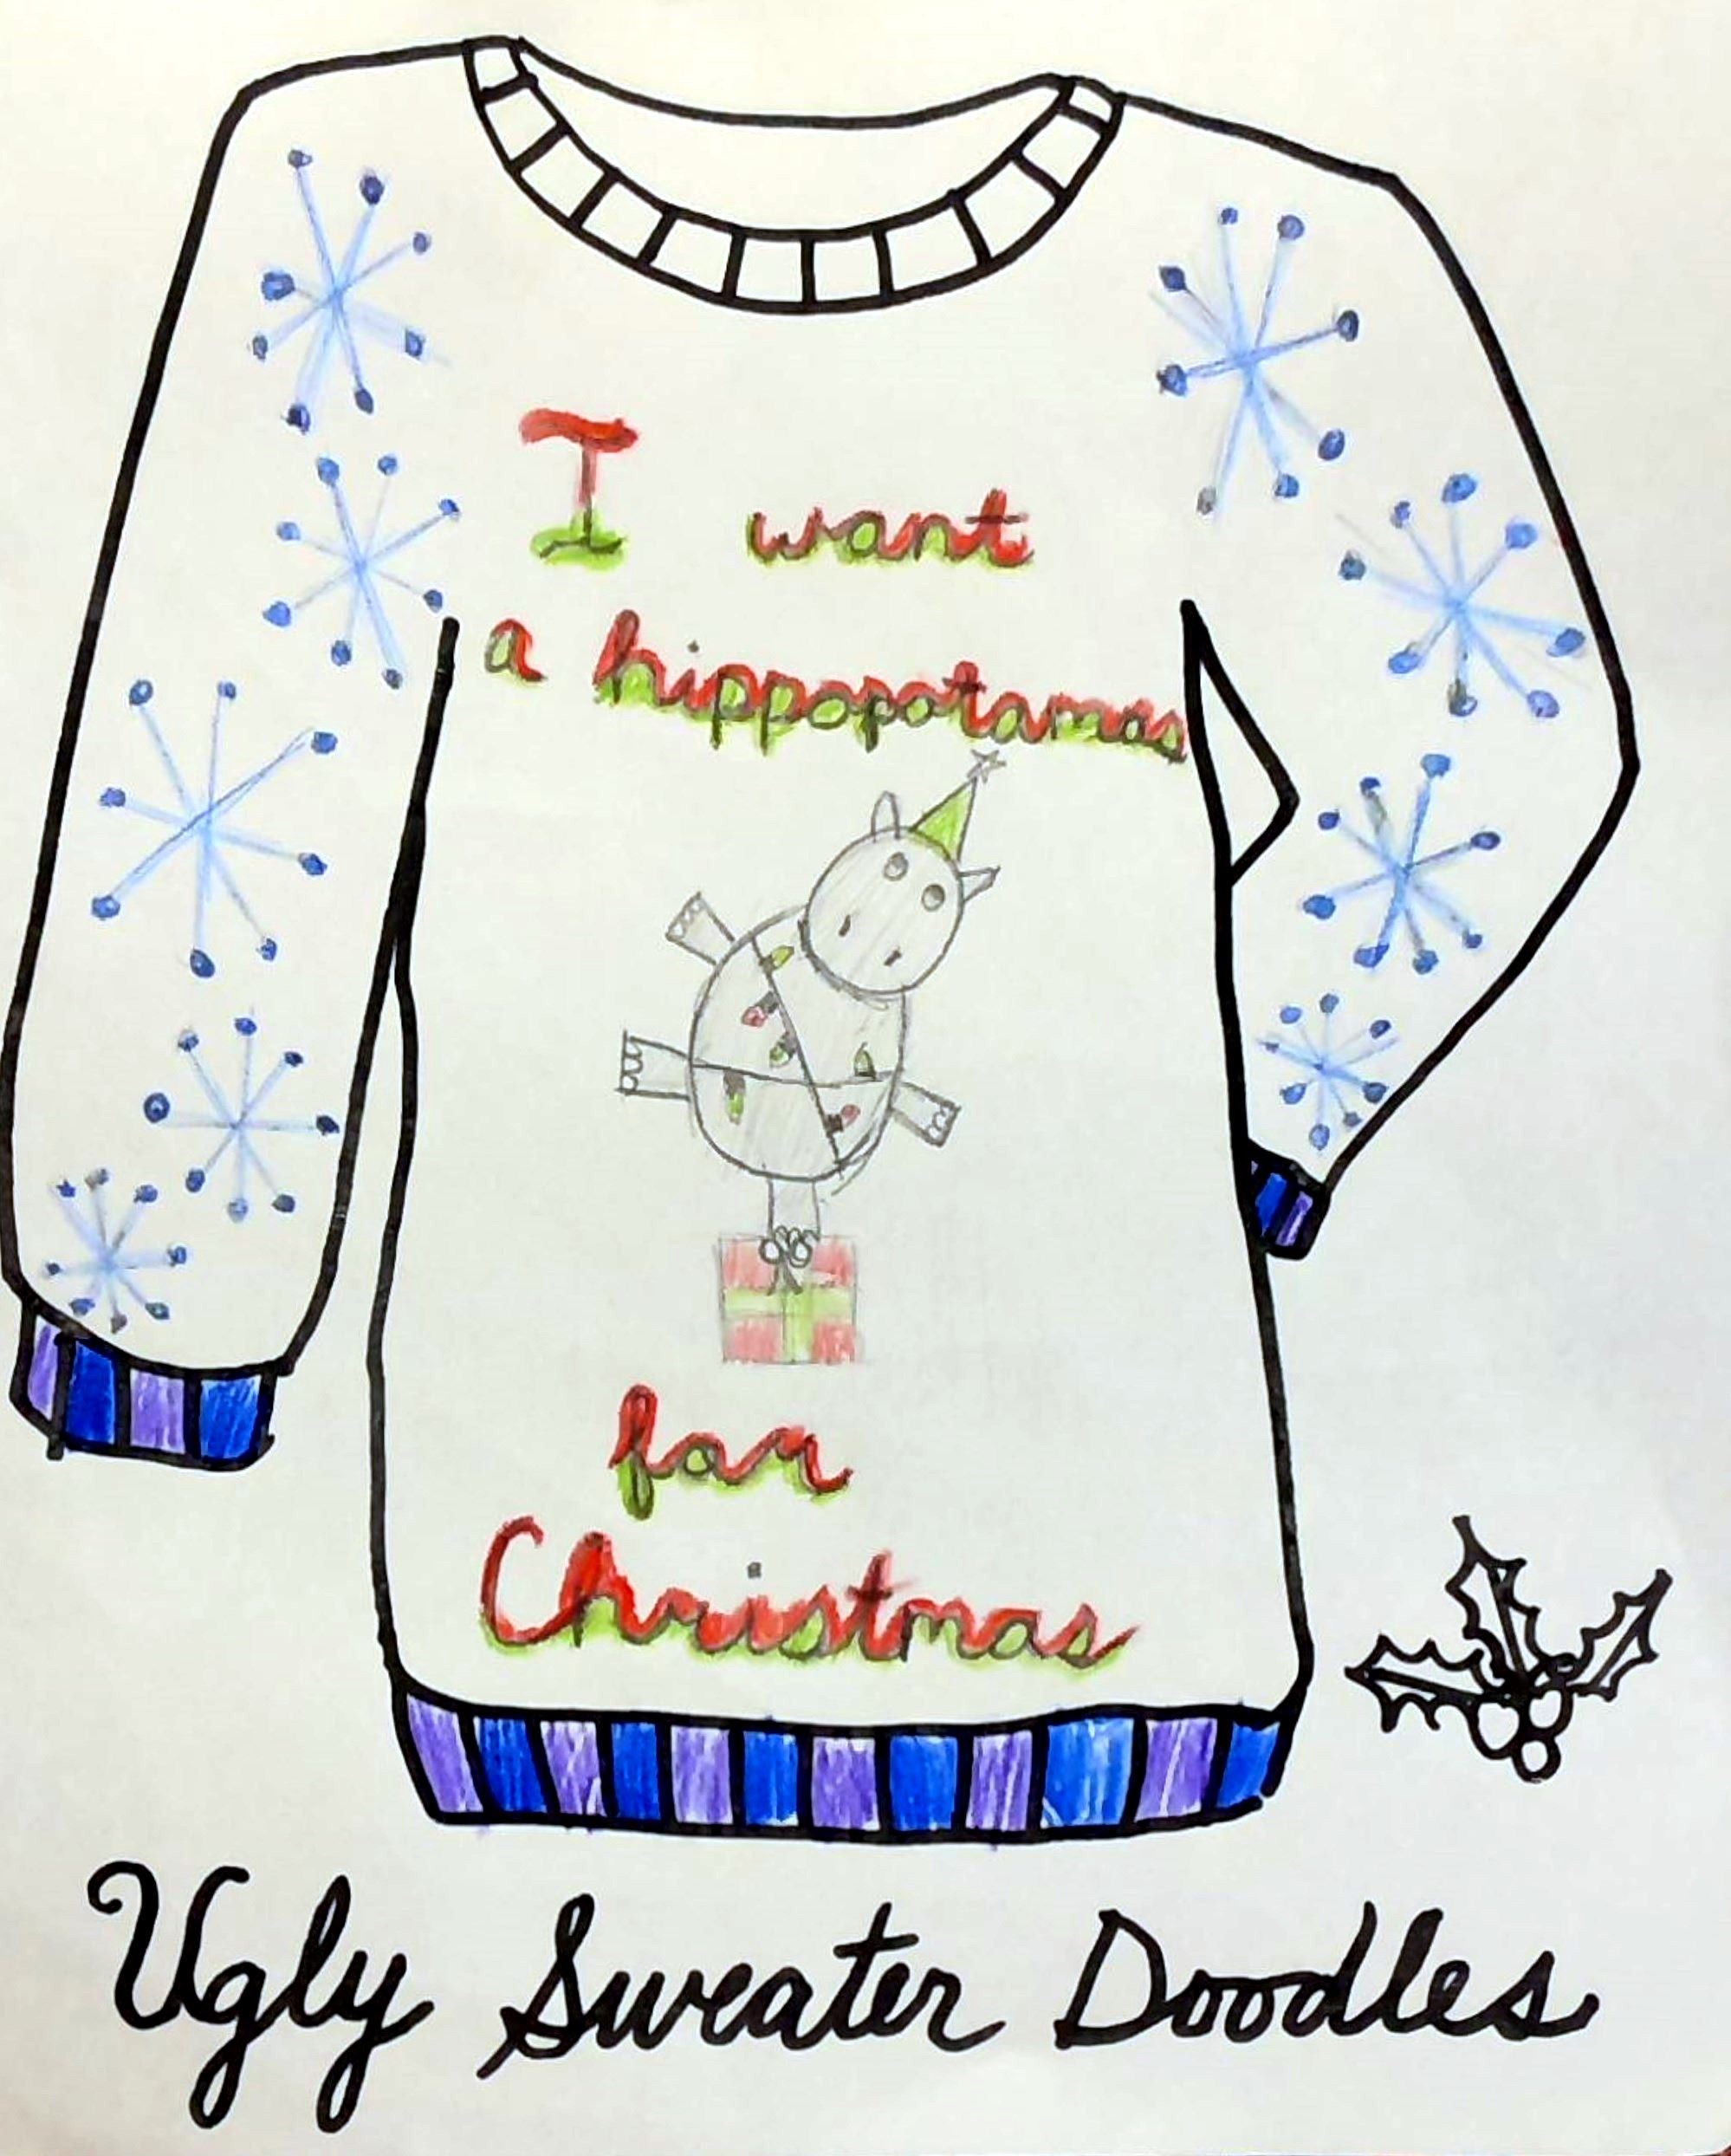 I want
a hippopotamas
for
Christmas
Ugly Sweater Doodles